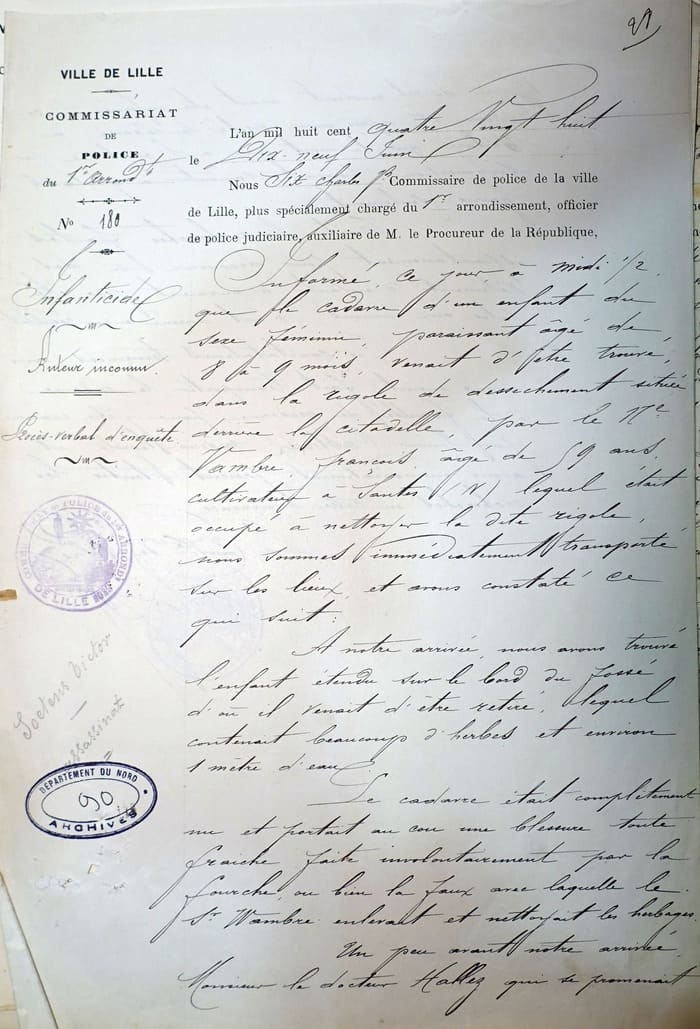 21
VILLE DE LILLE
COMMISSARIAT
DE
POLICE
du 1er arrondt
No 180
Infanticide
Auteur inconnu.
Procès-verbal d'enquête
L'an mil huit cent quatre Vingt huit
le Dix-neuf Juin
Nous Six Charles Commissaire de police de la ville
de Lille, plus spécialement chargé du 1er arrondissement, officier
de police judiciaire, auxiliaire de M. le Procureur de la République,
Informé, ce jour, à midi 1/2
que le cadavre d'un enfant du
sexe féminin, paraissant âgé de
8 à 9 mois, venait d'être trouvé,
dans la rigole de dessèchement située
derrière la citadelle, par le Né
Wambre françois, âgé de 59 ans,
cultivateur à Santes (N) lequel était
occupé à nettoyer la dite rigole,
nous sommes immédiatement transporté
sur les lieux et avons constaté ce
qui suit:
A notre arrivée, nous avons trouvé
l'enfant étendu sur le bord du fossé
d'où il venait d'être retiré, lequel
contenait beaucoup d'herbes et environ
1 mètre d'eau.
Le cadavre était complètement
nu et portait au cou une blessure toute
fraiche faite involontairement par la
fourche, ou bien la faux avec laquelle le
Sr Wambre enlevait et nettoyait les herbages.
Un peu avant notre arrivée,
Monsieur le docteur Hallez qui se promenait
DE LILLE
Socteur Victor
assassinat
DEPARTEMENT DU NORD
90
ARCHIVES